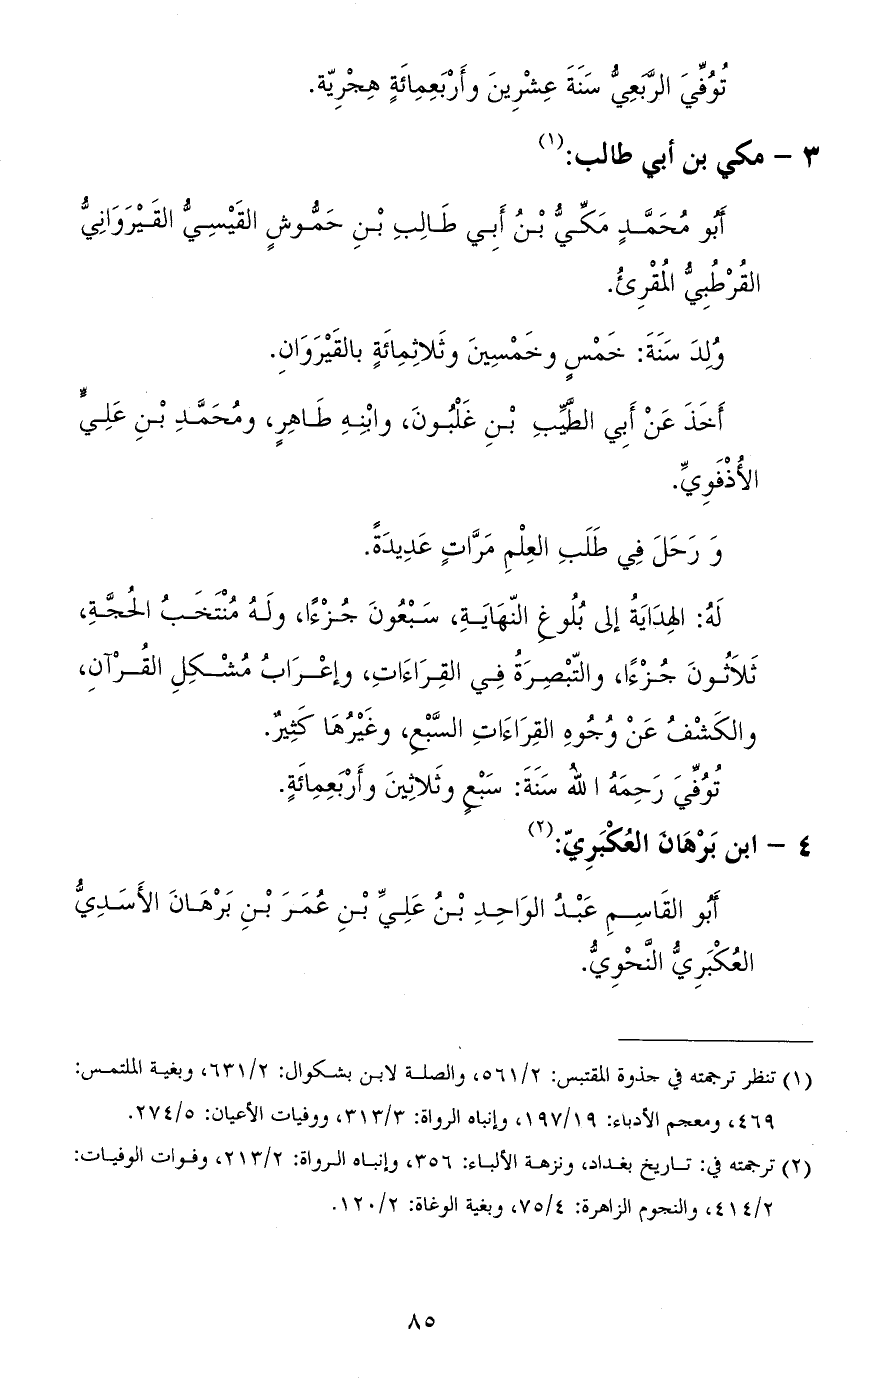 تُوُفِّيَ الرَّبَعِيُّ سَنَةَ عِشْرِينَ وأَرْبَعِمِائَةٍ هِجْرِيّة.
٣ – مكي بن أبي طالب:(١)
أَبُو مُحَمَّدٍ مَكِّيُّ بْنُ أَبِي طَالِبِ بْنِ حَمُّوشٍ القَيْسِيُّ القَيْرَوَانِيُّ
القُرْطُبِيُّ المُقْرِئُ.
وُلِدَ سَنَةَ: خَمْسٍ وخَمْسِينَ وثَلاثِمِائَةٍ بالقَيْرَوَانِ.
أَخَذَ عَنْ أَبِي الطَّيِّبِ بْنِ غَلْبُونَ، وابْنِهِ طَاهِرٍ، ومُحَمَّدِ بْنِ عَلِيٍّ
الأُدْفُوِيِّ.
وَ رَحَلَ فِي طَلَبِ العِلْمِ مَرَّاتٍ عَدِيدَةً.
لَهُ: الهِدَايَةُ إلى بُلُوغِ النِّهَايَةِ، سَبْعُونَ جُزْءًا، ولَهُ مُنْتَخَبُ الحُجَّةِ،
ثَلاَثُونَ جُزْءًا، والتَّبْصِرَةُ فِي القِرَاءَاتِ، وإعْرَابُ مُشْكِلِ القُرْآنِ،
والكَشْفُ عَنْ وُجُوهِ القِرَاءَاتِ السَّبْعِ، وغَيْرُهَا كَثِيرٌ.
تُوُفِّيَ رَحِمَهُ اللهُ سَنَةَ: سَبْعٍ وثَلاثِينَ وأَرْبَعِمِائَةٍ.
٤ – ابن بَرْهَانَ العُكْبَرِيّ:(٢)
أَبُو القَاسِمِ عَبْدُ الوَاحِدِ بْنُ عَلِيِّ بْنِ عُمَرَ بْنِ بَرْهَانَ الأَسَدِيُّ
العُكْبَرِيُّ النَّحْوِيُّ.
(١) تنظر ترجمته في جذوة المقتبس: ٥٦١/٢، والصلة لابن بشكوال: ٦٣١/٢، وبغية الملتمس:
٤٦٩، ومعجم الأدباء: ١٩٧/١٩، وإنباه الرواة: ٣١٣/٣، ووفيات الأعيان: ٢٧٤/٥.
(٢) ترجمته في: تاريخ بغداد، ونزهة الألباء: ٣٥٦، وإنباه الرواة: ٢١٣/٢، وفوات الوفيات:
٤١٤/٢، والنجوم الزاهرة: ٧٥/٤، وبغية الوغاة: ١٢٠/٢.
٨٥